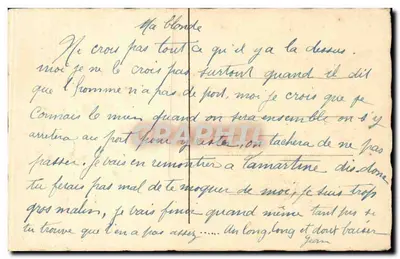 Ma blonde
Ne crois pas tout ce qu'il y a la dessus.
moi je ne le crois pas surtout quand il dit
que l'homme n'a pas de port, moi je crois que je
connais le mien quand on sera ensemble on s'y
arretera au port pour y rester, on tachera de ne pas
passer. Je vais en remontrer a Lamartine dis donc
tu ferais pas mal de te moquer de moi, je suis trop
gros malin, je vais finir quand même tant pis si
tu trouve que t'en a pas assez...... des long, long et doux baiser